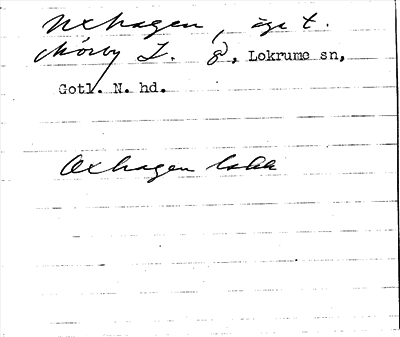 Uxhagen, äga t.
Mörby L. g., Lokrume sn,
Gotl. N. hd.
Oxhagen